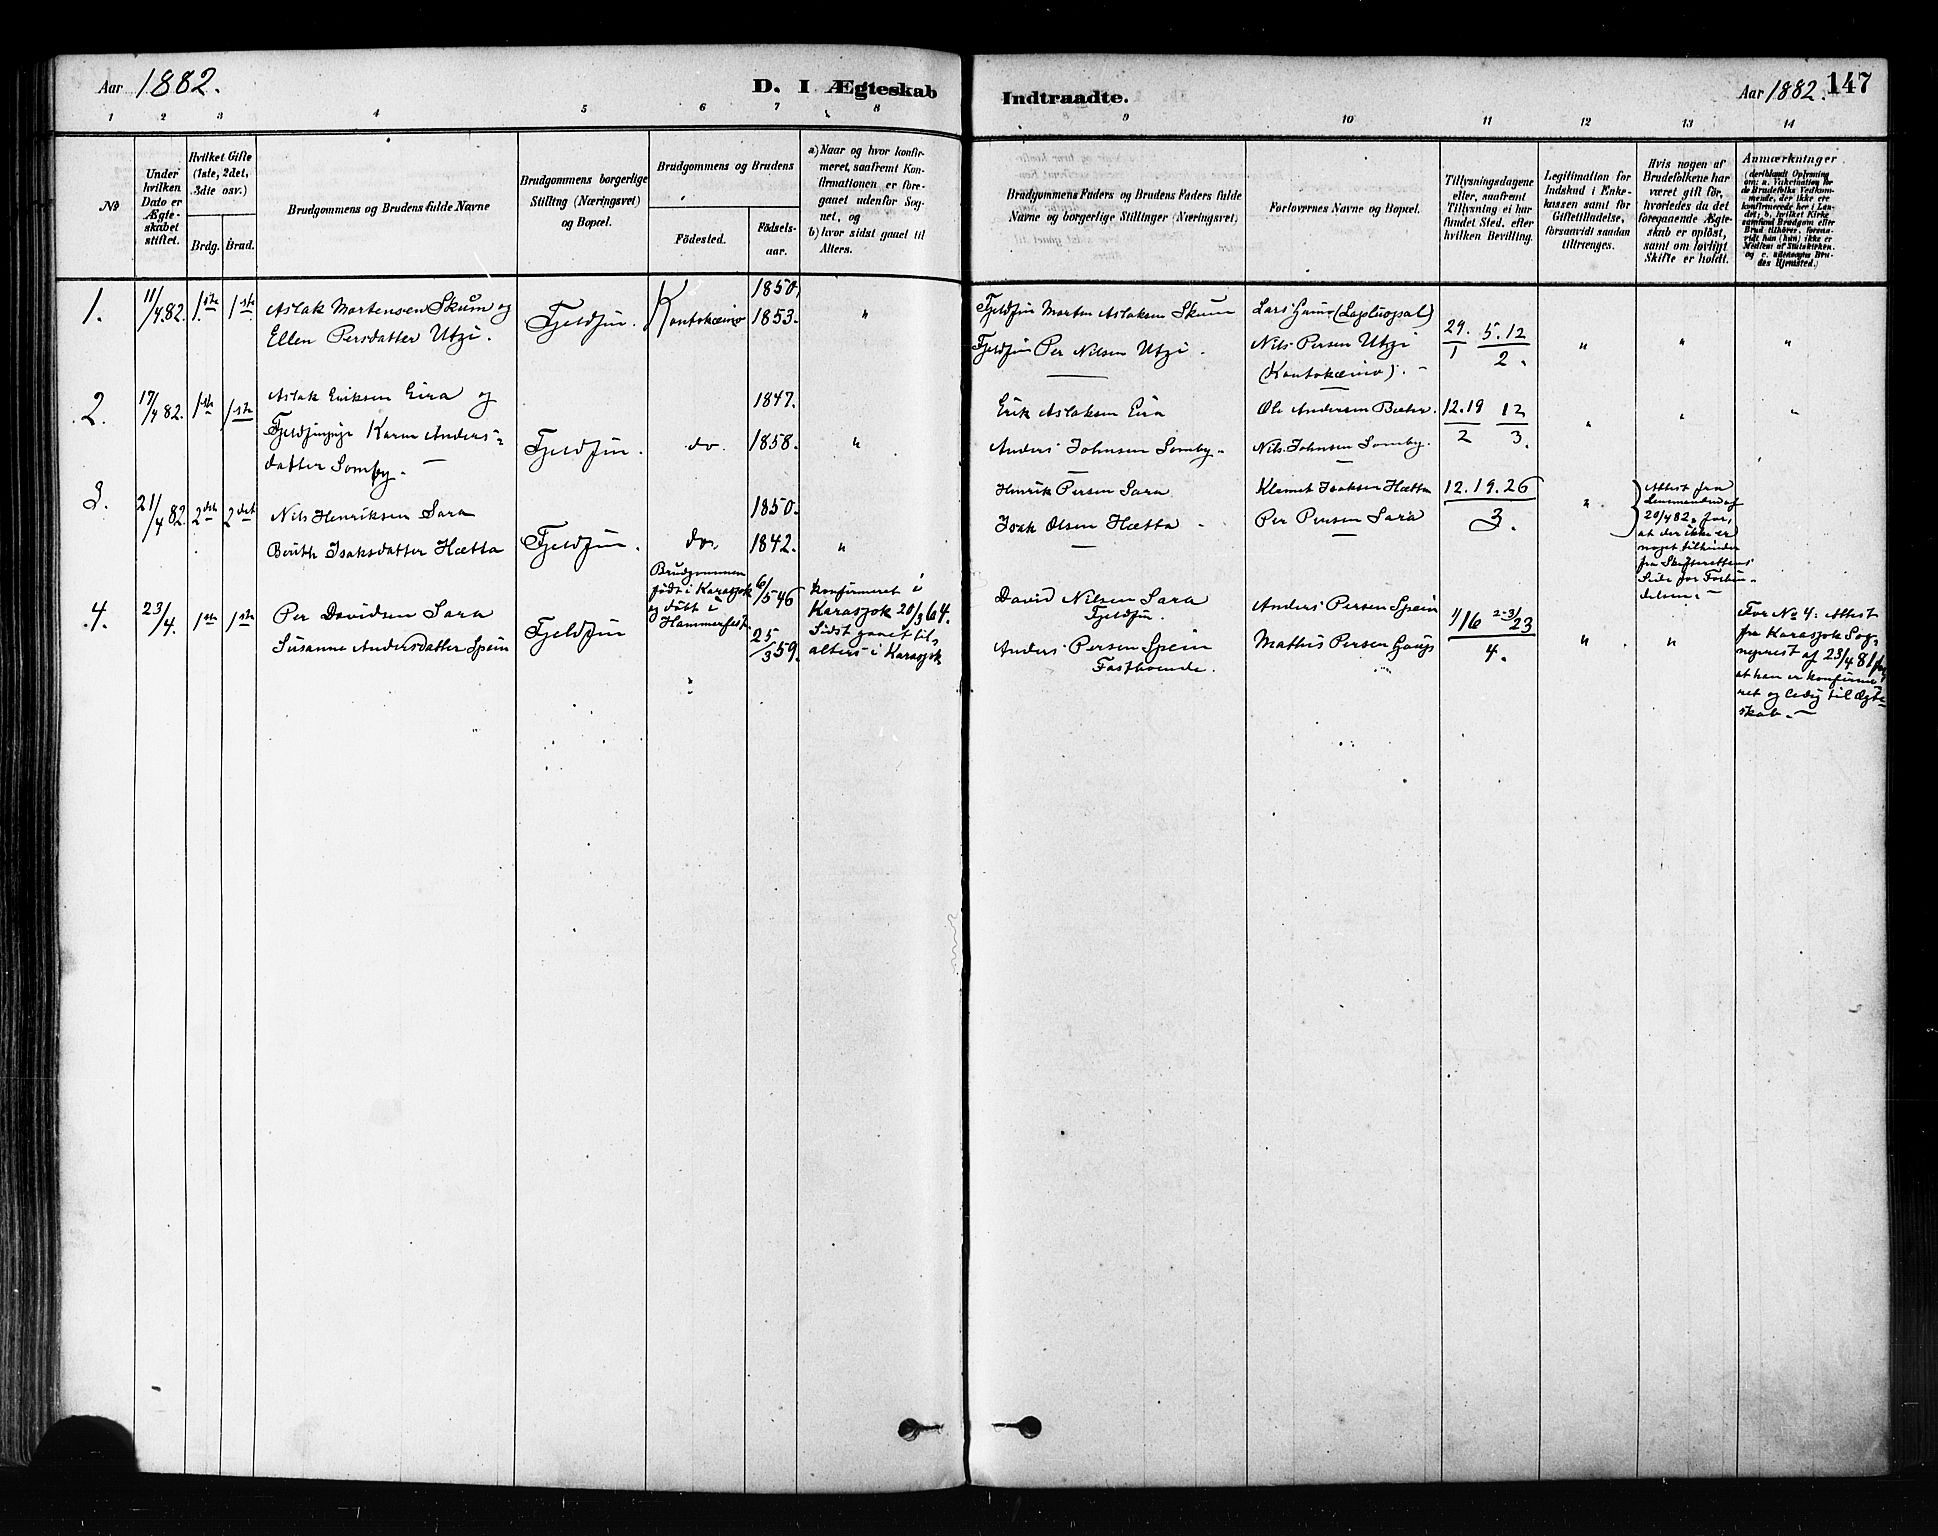 Aar 1882.
D. I Ægteskab
Indtraadte.
Aar 1882.
147
1 2 3 4 5 6 7 8
8 9 10 11 12 13 14
No
Under
hvilken
Dato er
Ægte-
skabet
stiftet.
Hvilket Gifte
(1ste, 2det,
3die osv.)
Brdg. Brud.
Brudgommens og Brudens fulde Navne
Brudgommens borgerlige
Stilling (Næringsvei)
og Bopæl.
Brudgommens og Brudens
Fødested.
Fødsels-
aar.
a) Naar og hvor konfir-
meret, saafremt Kon-
firmationen er fore-
gaaet udenfor Sog-
net, og
b) hvor sidst gaaet til
Alters.
Brudgommens Faders og Brudens Faders fulde
Navne og borgerlige Stillinger (Næringsvei)
Forlovernes Navne og Bopæl.
Tillysningsdagene
eller, saafremt
Tillysning ei har
fundet Sted, efter
hvilken Bevilling.
Legitimation for
Indskud i Enke-
kassen samt for
Giftetilladelse,
forsaavidt saadan
tiltrænges.
Hvis nogen af
Brudefolkene har
været gift før,
hvorledes da det
foregaaende Ægte-
skab er opløst,
samt om lovligt
Skifte er holdt.
Anmærkninger
(deriblandt Oplysning
om: a. Vaksination for
de Brudefolks Vedkom-
mende, der ikke ere
konfirmerede her i Lan-
det; b. hvilket Kirke-
samfund Brudgom eller
Brud tilhører, forsaa-
vidt han (hun) ikke er
Medlem af Statskirken,
og c. udensogns Bru-
des Hjemsted.)
1.
11/4 82.
1ste 1ste
Aslak Mortensen Skum og
Ellen Persdatter Utzi.
Fjeldfin.
Kautokæino
1850,
1853.
"
Fjeldfin Morten Aslaksen Skum
Fjeldfin Per Nilsen Utzi.
Lars Gaino (Lapluopal)
Nils Persen Utzi
(Kautokæino). -
29. 5. 12
1 2.
" " "
2.
17/4 82.
1ste 1ste
Aslak Eriksen Eira og
Fjeldfinpige Karen Anders-
datter Somby. -
Fjeldfin.
do.
1847.
1858.
"
Erik Aslaksen Eira
Anders Johnsen Somby.
Ole Andersen Bæhr.
Nils Johnsen Somby.
12. 19 12
2 3.
" " "
3.
21/4 82.
2det 2det
Nils Henriksen Sara
Berith Isaksdatter Hætta
Fjeldfin.
do.
1850.
1842.
"
Henrik Persen Sara
Isak Olsen Hætta -
Klemet Isaksen Hætta
Per Persen Sara
12. 19. 26
3.
"
Attest fra
Lensmanden af
20/4 82, for,
at der ikke er
noget tilhinder
fra Skifterettens
Side for Forbin-
delsen. -
4.
23/4.
1ste 1ste
Per Davidsen Sara
Susanne Andersdatter Spein
Fjeldfin
Brudgommen
født i Karasjok
og døbt i
Hammerfest.
6/5 46
25/3 59.
Konfirmeret i
Karasjok 20/3 64.
Sidst gaaet til
alters i Karasjok
David Nilsen Sara
Fjeldfin.
Anders Persen Spein
Fastboende.
Anders Persen Spein
Mathis Persen Gaup
"/16 23
4.
" "
For No 4: Attest
fra Karasjok Sog-
neprest af 23/4 81 for,
at han er konfirme-
ret og ledig til Ægte-
skab. -